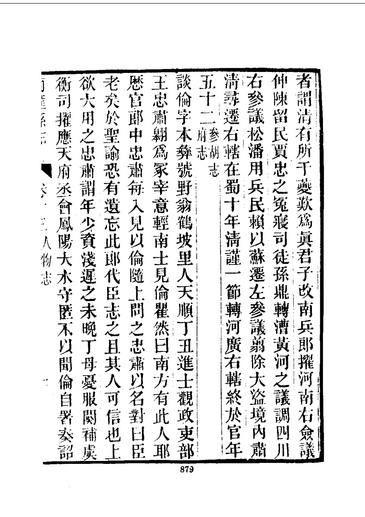 者謂清有所干夔歎爲眞君子改南兵郎擢河南右僉議
伸陳留民賈忠之冤寢司徒孫鼎轉漕黃河之議調四川
右參議松潘用兵民賴以蘇遷左參議翦除大盜境內肅
清尋遷右轄在蜀十年清謹一節轉河廣右轄終於官年
五十二參胡志府志
談倫字本彝號野翁鶴坡里人天順丁丑進士觀政吏部
王忠肅翺爲冢宰意輕南士見倫瞿然曰南方有此人耶
歴官郎中忠肅每入見以倫隨上問之忠肅以名對曰臣
老矣於聖諭恐有遺忘此郎代臣志之且其人可信也上
欲大用之忠肅謂年少資淺遲之未晚丁母憂服闋補虞
衡司擢應天府丞會鳳陽大水守匿不以聞倫自署奏詔
縣志 卷十三 人物志
879